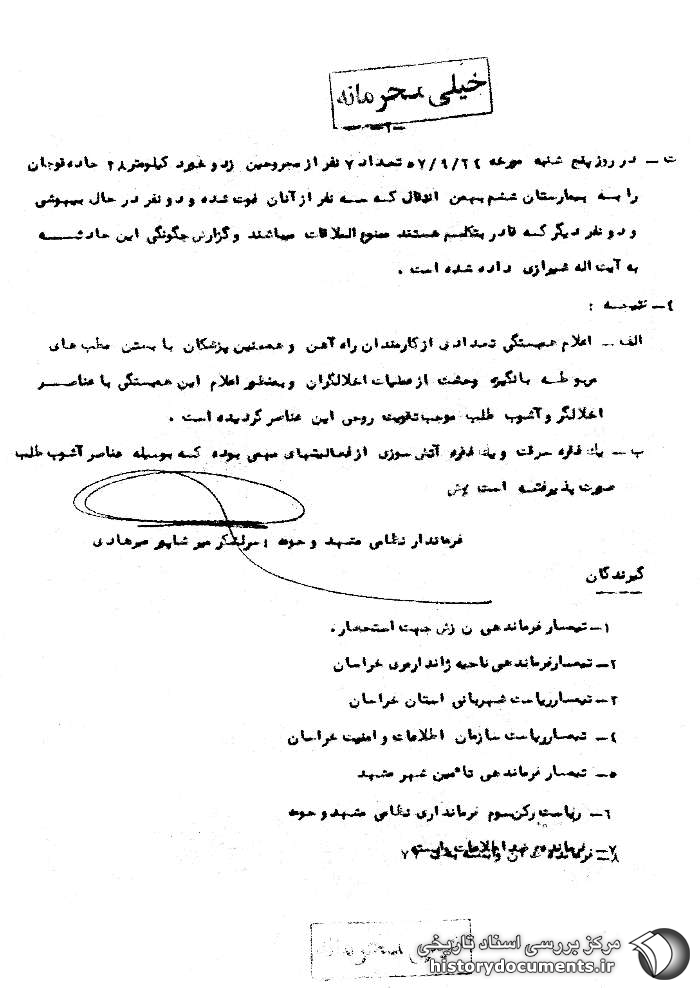 خیلی محرمانه
ت ـ در روز پنج شنبه مورخه ۵۷/۹/۲۲ تعداد ۷ نفر از مجروحین زد و خورد کیلومتر ۲۸ جاده قوچان
را به بیمارستان ششم بهمن انتقال که سه نفر از آنان فوت شده و دو نفر در حال بیهوشی
و دو نفر دیگر که قادر بتکلم هستند ممنوع الملاقات میباشند و گزارش چگونگی این حادثه
به آیت اله شیرازی داده شده است .
٤ـ نتیجه :
الف ـ اعلام همبستگی تعدادی از کارمندان راه آهن و همچنین پزشکان با بستن مطب های
مربوطه با انگیزه وحشت از عملیات اخلالگران و بمنظور اعلام این همبستگی با عناصر
اخلالگر و آشوب طلب موجب تقویت روحی این عناصر گردیده است .
ب ـ یک فقره سرقت و یک فقره آتش سوزی از فعالیتهای مهمی بوده که بوسیله عناصر آشوب طلب
صورت پذیرفته است
فرماندار نظامی مشهد و حومه : سرلشکر میر شاپور میرهادی
گیرندگان
۱ـ تیمسار فرماندهی ن زش جهت استحضار .
۲ـ تیمسار فرماندهی ناحیه ژاندارمری خراسان
۳ـ تیمسار ریاست شهربانی استان خراسان
٤ـ تیمسار ریاست سازمان اطلاعات و امنیت خراسان
۵ـ تیمسار فرماندهی تامین شهر مشهد
٦ـ ریاست رکن سوم فرمانداری نظامی مشهد و حومه
۷ـ فرمانده ضد اطلاعات وابسته
۸ـ فرمانده ۷۷
مرکز بررسی اسناد تاریخی
historydocuments.ir